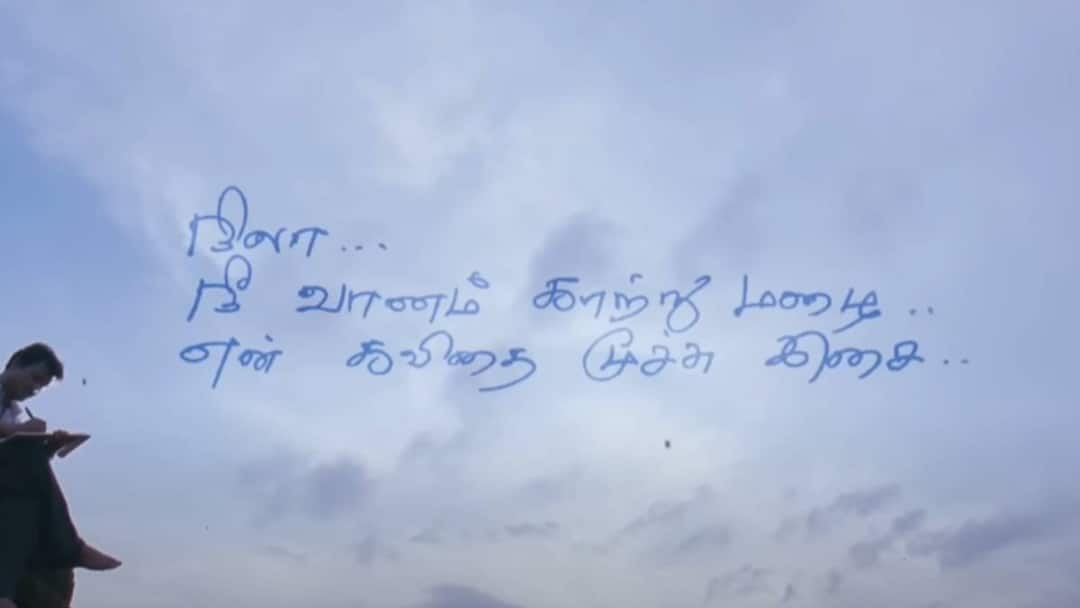 நிலா...
நீ வானம் காற்று மழை..
என் கவிதை மூச்சு இசை..